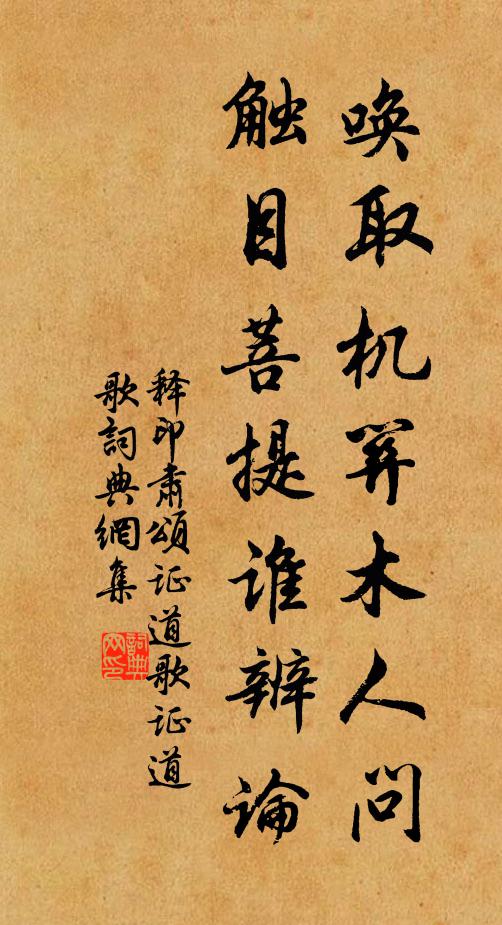 唤取机关木人问
触目菩提谁辨论
释印肅頌证道歌证道
歌詞典網集
詞典
网印